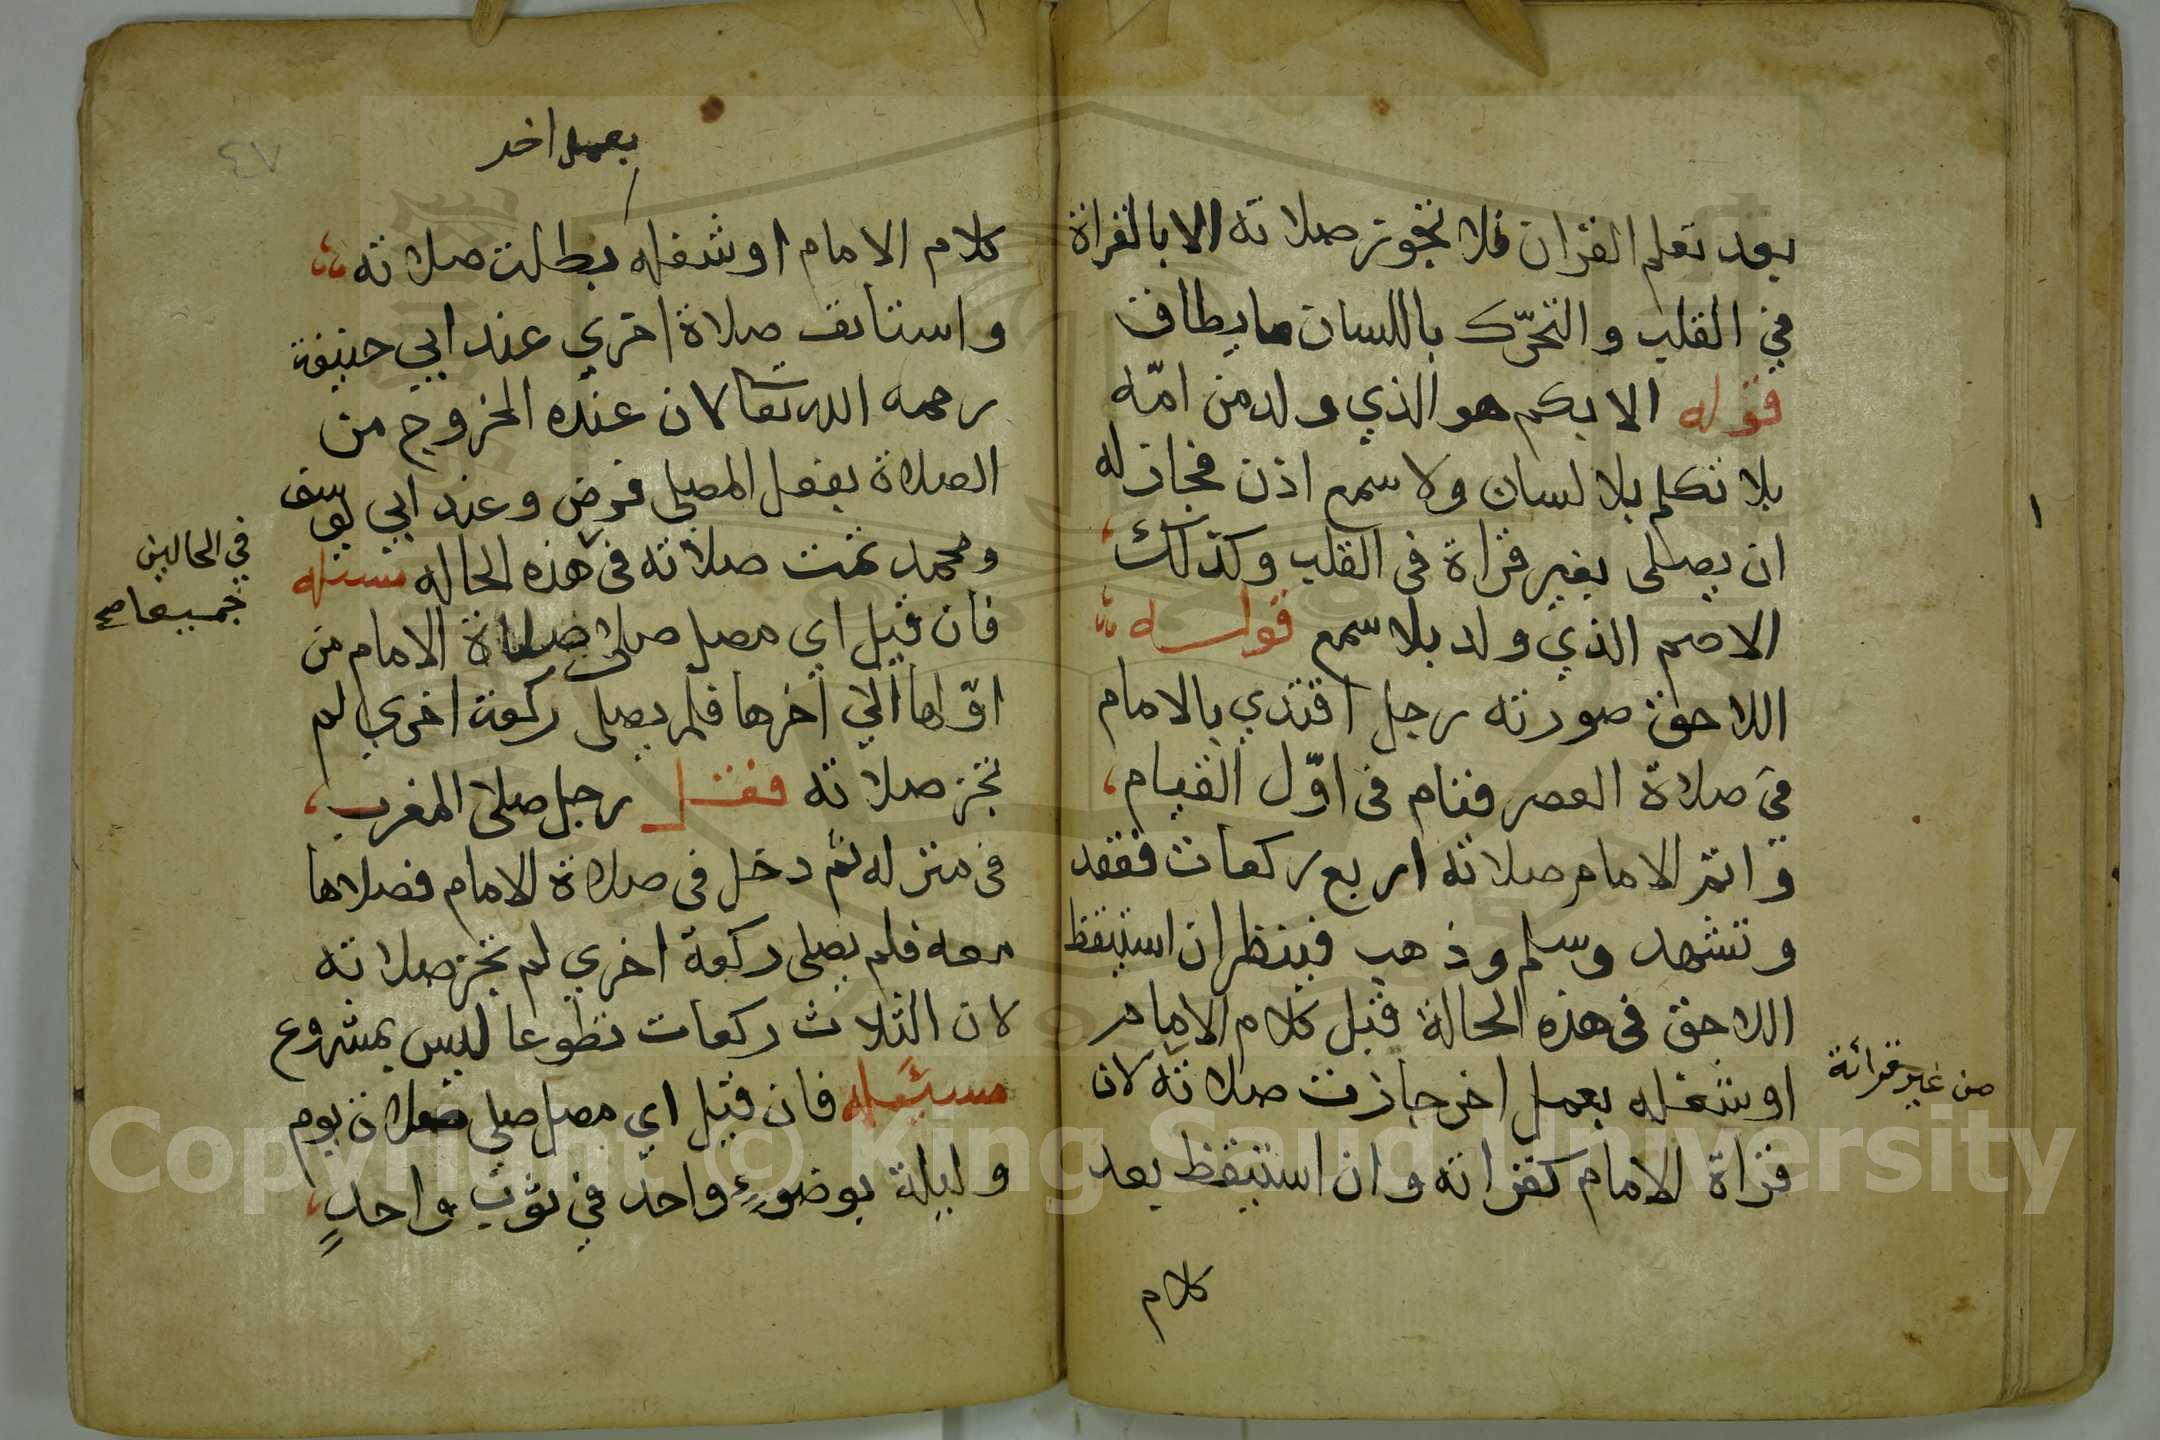 بعد تعلم القران فلا تجوز صلاته الا بالقراة
في القلب والتحرّك باللسان ما يطاق
قوله الابكم هو الذي ولد من امّه
بلا تكلم بلا لسان ولا سمع اذن فجاز له
ان يصلى بغير قراة فى القلب وكذلك
الاصم الذي ولد بلا سمع قوله
اللاحق صورته رجل اقتدي بالامام
في صلاة العصر فنام فى اوّل القيام
واتم الامام صلاته اربع ركعات فقعد
وتشهد وسلم وذهب فينظر ان استيقظ
اللاحق فى هذه الحالة قبل كلام الامام
او شغله بعمل اخر جازت صلاته لان
من غير قرائة
قراة الامام كقراته وان استيقظ بعد
كلام
٤٧
بعمل اخر
كلام الامام او شغله بطلت صلاته
واستانف صلاة اخري عند ابي حنيفة
رحمه الله تعا لان عنده الخروج من
الصلاة بفعل المصلي فرض وعند ابي يوسف
ومحمد تمت صلاته فى هذه الحاله مسئله
في الحالين
جميعا صح
فان قيل اي مصل صلى صلاة الامام من
اوّلها الي اخرها فلم يصلى ركعة اخري لم
تجز صلاته فقل رجل صلى المغرب
فى منزله ثم دخل فى صلاة الامام فصلاها
معه فلم يصلى ركعة اخري لم تجز صلاته
لان الثلاث ركعات تطوعا ليس بمشروع
مسئله فان قيل اي مصل صلي صلاة يوم
وليلة بوضوءٍ واحد في ثوب واحدٍ
Copyright © King Saud University